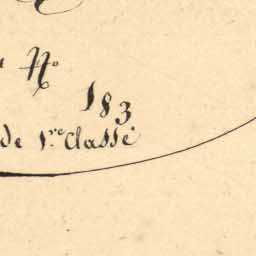 No
183
de 1.re Classe